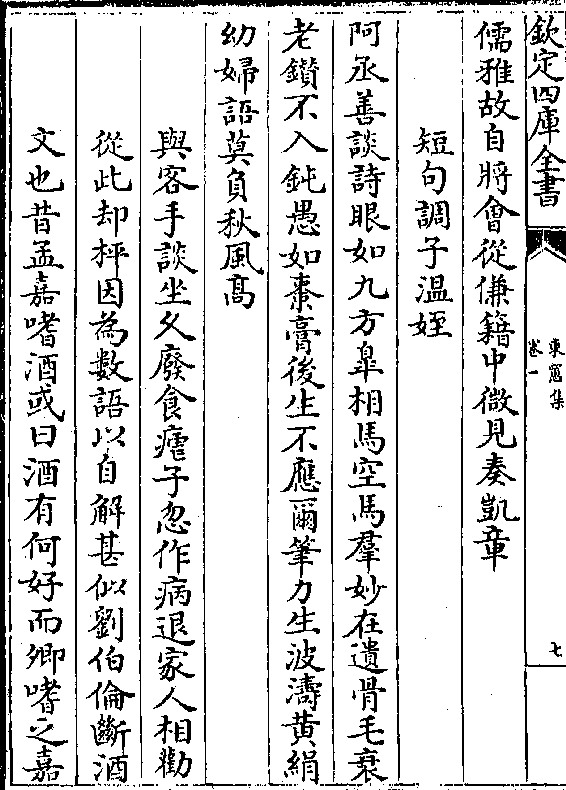 欽定四庫全書
東窻集
卷一
七
儒雅故自將會從傔籍中微見奏凱章
短句調子溫姪
阿丞善談詩眼如九方臯相馬空馬羣妙在遺骨毛衰
老鑚不入鈍愚如棗膏後生不應爾筆力生波濤黄絹
幼婦語莫負秋風髙
與客手談坐久廢食瘧子忽作病退家人相勸
從此却枰因為數語以自解甚似劉伯倫斷酒
文也昔孟嘉嗜酒或曰酒有何好而卿嗜之嘉